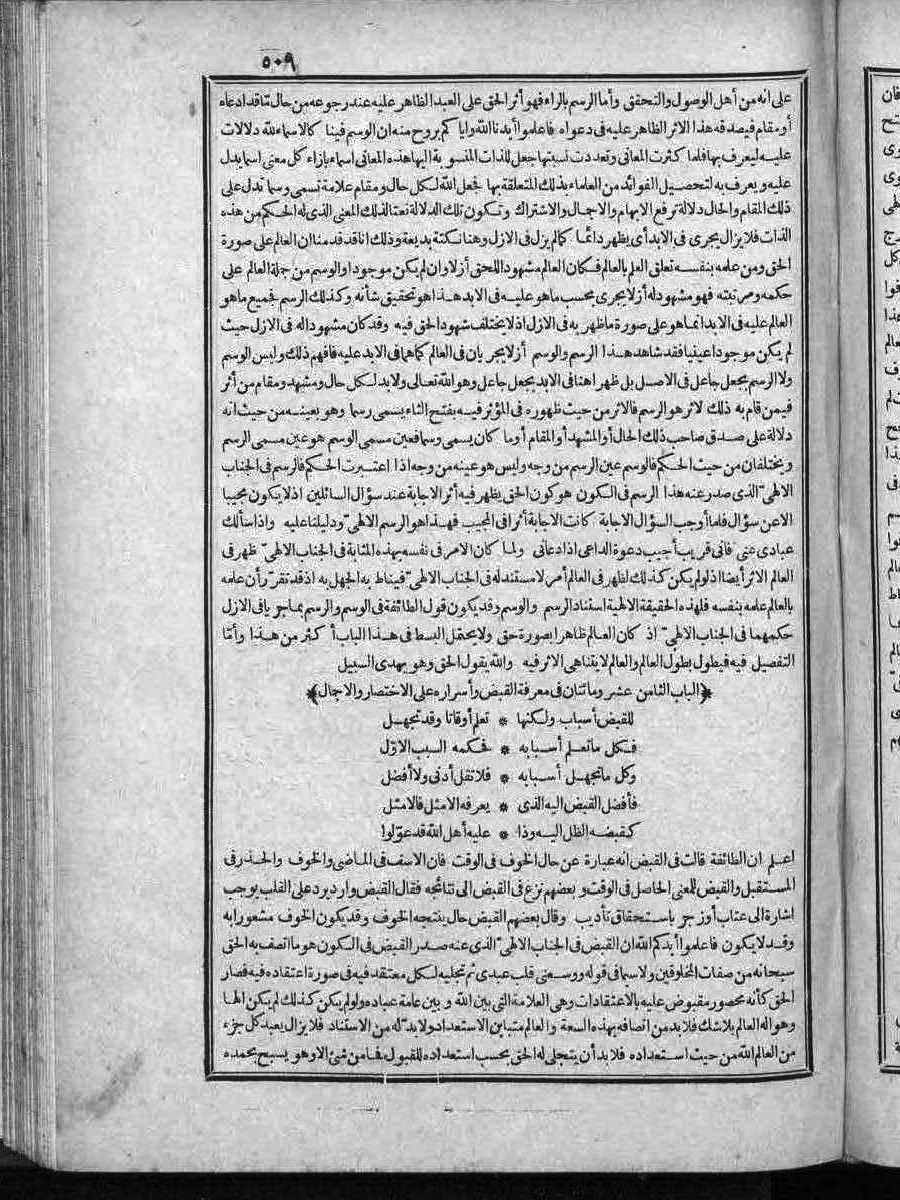 ٥٠٩
على انه من أهل الوصول والتحقق وأما الرسم بالراء فهو أثر الحق على العبد الظاهر عليه عند رجوعه من حال ما قد ادعاه
أو مقام فيصدقه هذا الاثر الظاهر عليه فى دعواه فاعلموا أيدنا الله واياكم بروح منه ان الوسم فينا كالاسماء لله دلالات
عليه ليعرف بها فلما كثرت المعانى وتعددت نسبتها جعل للذات المنسوبة اليها هذه المعانى اسماء بازاء كل معنى اسما يدل
عليه ويعرف به لتحصيل الفوائد من العلماء بذلك المتعلقة بها فجعل الله لكل حال ومقام علامة تسمى وسما تدل على
ذلك المقام والحال دلالة ترفع الابهام والاجمال والاشتراك وتكون تلك الدلالة نعتا لذلك المعنى الذى له الحكم من هذه
الذات فلا يزال يجرى فى الابد أى يظهر دائما كما لم يزل فى الازل وهنا نكتة بديعة وذلك انا قد قدمنا ان العالم على صورة
الحق ومن علمه بنفسه تعلق العلم بالعالم فكان العالم مشهودا للحق أزلا وان لم يكن موجودا والوسم من جملة العالم على
حكمه ومرتبته فهو مشهود له أزلا يجرى بحسب ما هو عليه فى الابد هذا هو تحقيق شأنه وكذلك الرسم فجميع ما هو
العالم عليه فى الابد انما هو على صورة ما ظهر به فى الازل اذ لا يختلف شهود الحق فيه وقد كان مشهودا له فى الازل حيث
لم يكن موجودا عينيا فقد شاهد هذا الرسم والوسم أزلا يجريان فى العالم كما هما فى الابد عليه فافهم ذلك وليس الوسم
ولا الرسم بجعل جاعل فى الاصل بل ظهر اهنا فى الابد بجعل جاعل وهو الله تعالى ولا بد لكل حال ومشهد ومقام من أثر
فيمن قام به ذلك لاثر هو الرسم فالاثر من حيث ظهوره فى المؤثر فيه بفتح الثاء يسمى رسما وهو بعينه من حيث انه
دلالة على صدق صاحب ذلك الحال أو المشهد أو المقام أو ما كان يسمى وسما فعين مسمى الوسم هو عين مسمى الرسم
ويختلفان من حيث الحكم فالوسم عين الرسم من وجه وليس هو عينه من وجه اذا اعتبرت الحكم فالرسم فى الجناب
الالهىّ الذى صدر عنه هذا الرسم فى الكون هو كون الحق يظهر فيه أثر الاجابة عند سؤال السائلين اذ لا يكون مجيبا
الا عن سؤال فلما أوجب السؤال الاجابة كانت الاجابة أثرا فى المجيب فهذا هو الرسم الالهىّ ودليلنا عليه واذا سألك
عبادى عنى فانى قريب أجيب دعوة الداعى اذا دعانى ولما كان الامر فى نفسه بهذه المثابة فى الجناب الالهىّ ظهر فى
العالم الاثر أيضا اذ لو لم يكن كذلك لظهر فى العالم أمر لا مستند له فى الجناب الالهىّ فيناط به الجهل به اذ قد تقرّر أن علمه
بالعالم علمه بنفسه فلهذه الحقيقة الالهية استناد الرسم والوسم وقد يكون قول الطائفة فى الوسم والرسم بما جريا فى الازل
حكمهما فى الجناب الالهىّ اذ كان العالم ظاهرا بصورة حق ولا يحتمل البسط فى هذا الباب أكثر من هذا وأمّا
التفصيل فيه فيطول بطول العالم والعالم لا يتناهى الاثر فيه والله يقول الحق وهو يهدى السبيل
﴿الباب الثامن عشر ومائتان فى معرفة القبض وأسراره على الاختصار والاجمال﴾
للقبض أسباب ولكنها * تعلم أوقاتا وقد تجهل
فكل ما تعلم أسبابه * فحكمه السبب الاوّل
وكل ما تجهل أسبابه * فلا تقل أدنى ولا أفضل
فأفضل القبض اليه الذى * يعرفه الامثل فالامثل
كقبضه الظل اليه وذا * عليه أهل الله قد عوّلوا
اعلم ان الطائفة قالت فى القبض انه عبارة عن حال الخوف فى الوقت فان الاسف فى الماضى والخوف والحذر فى
المستقبل والقبض للمعنى الحاصل فى الوقت وبعضهم نزع فى القبض الى نتائجه فقال القبض وارد يرد على القلب يوجب
اشارة الى عتاب أو زجر باستحقاق تأديب وقال بعضهم القبض حال ينتجه الخوف وقد يكون الخوف مشعورا به
وقد لا يكون فاعلموا أيدكم الله ان القبض فى الجناب الالهىّ الذى عنه صدر القبض فى الكون هو ما اتصف به الحق
سبحانه من صفات المخلوقين ولا سيما فى قوله ووسعنى قلب عبدى ثم تجليه لكل معتقد فيه فى صورة اعتقاده فيه فصار
الحق كأنه محصور مقبوض عليه بالاعتقادات وهى العلامة التى بين الله وبين عامة عباده ولو لم يكن كذلك لم يكن الها
وهو اله العالم بلا شك فلا بد من اتصافه بهذه السعة والعالم متباين الاستعداد ولا بد له من الاستناد فلا يزال يعبد كل جزء
من العالم الله من حيث استعداده فلا بد أن يتجلى له الحق بحسب استعداده للقبول فما من شئ الا وهو يسبح بحمده